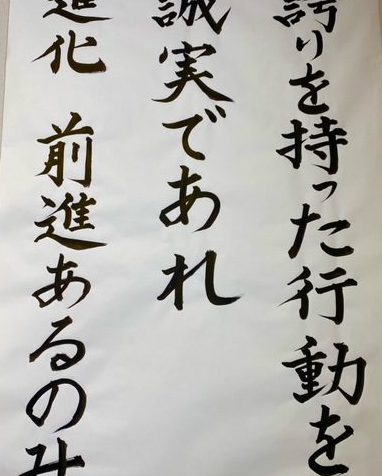 誇りを持った行動を
誠実であれ
進化 前進あるのみ